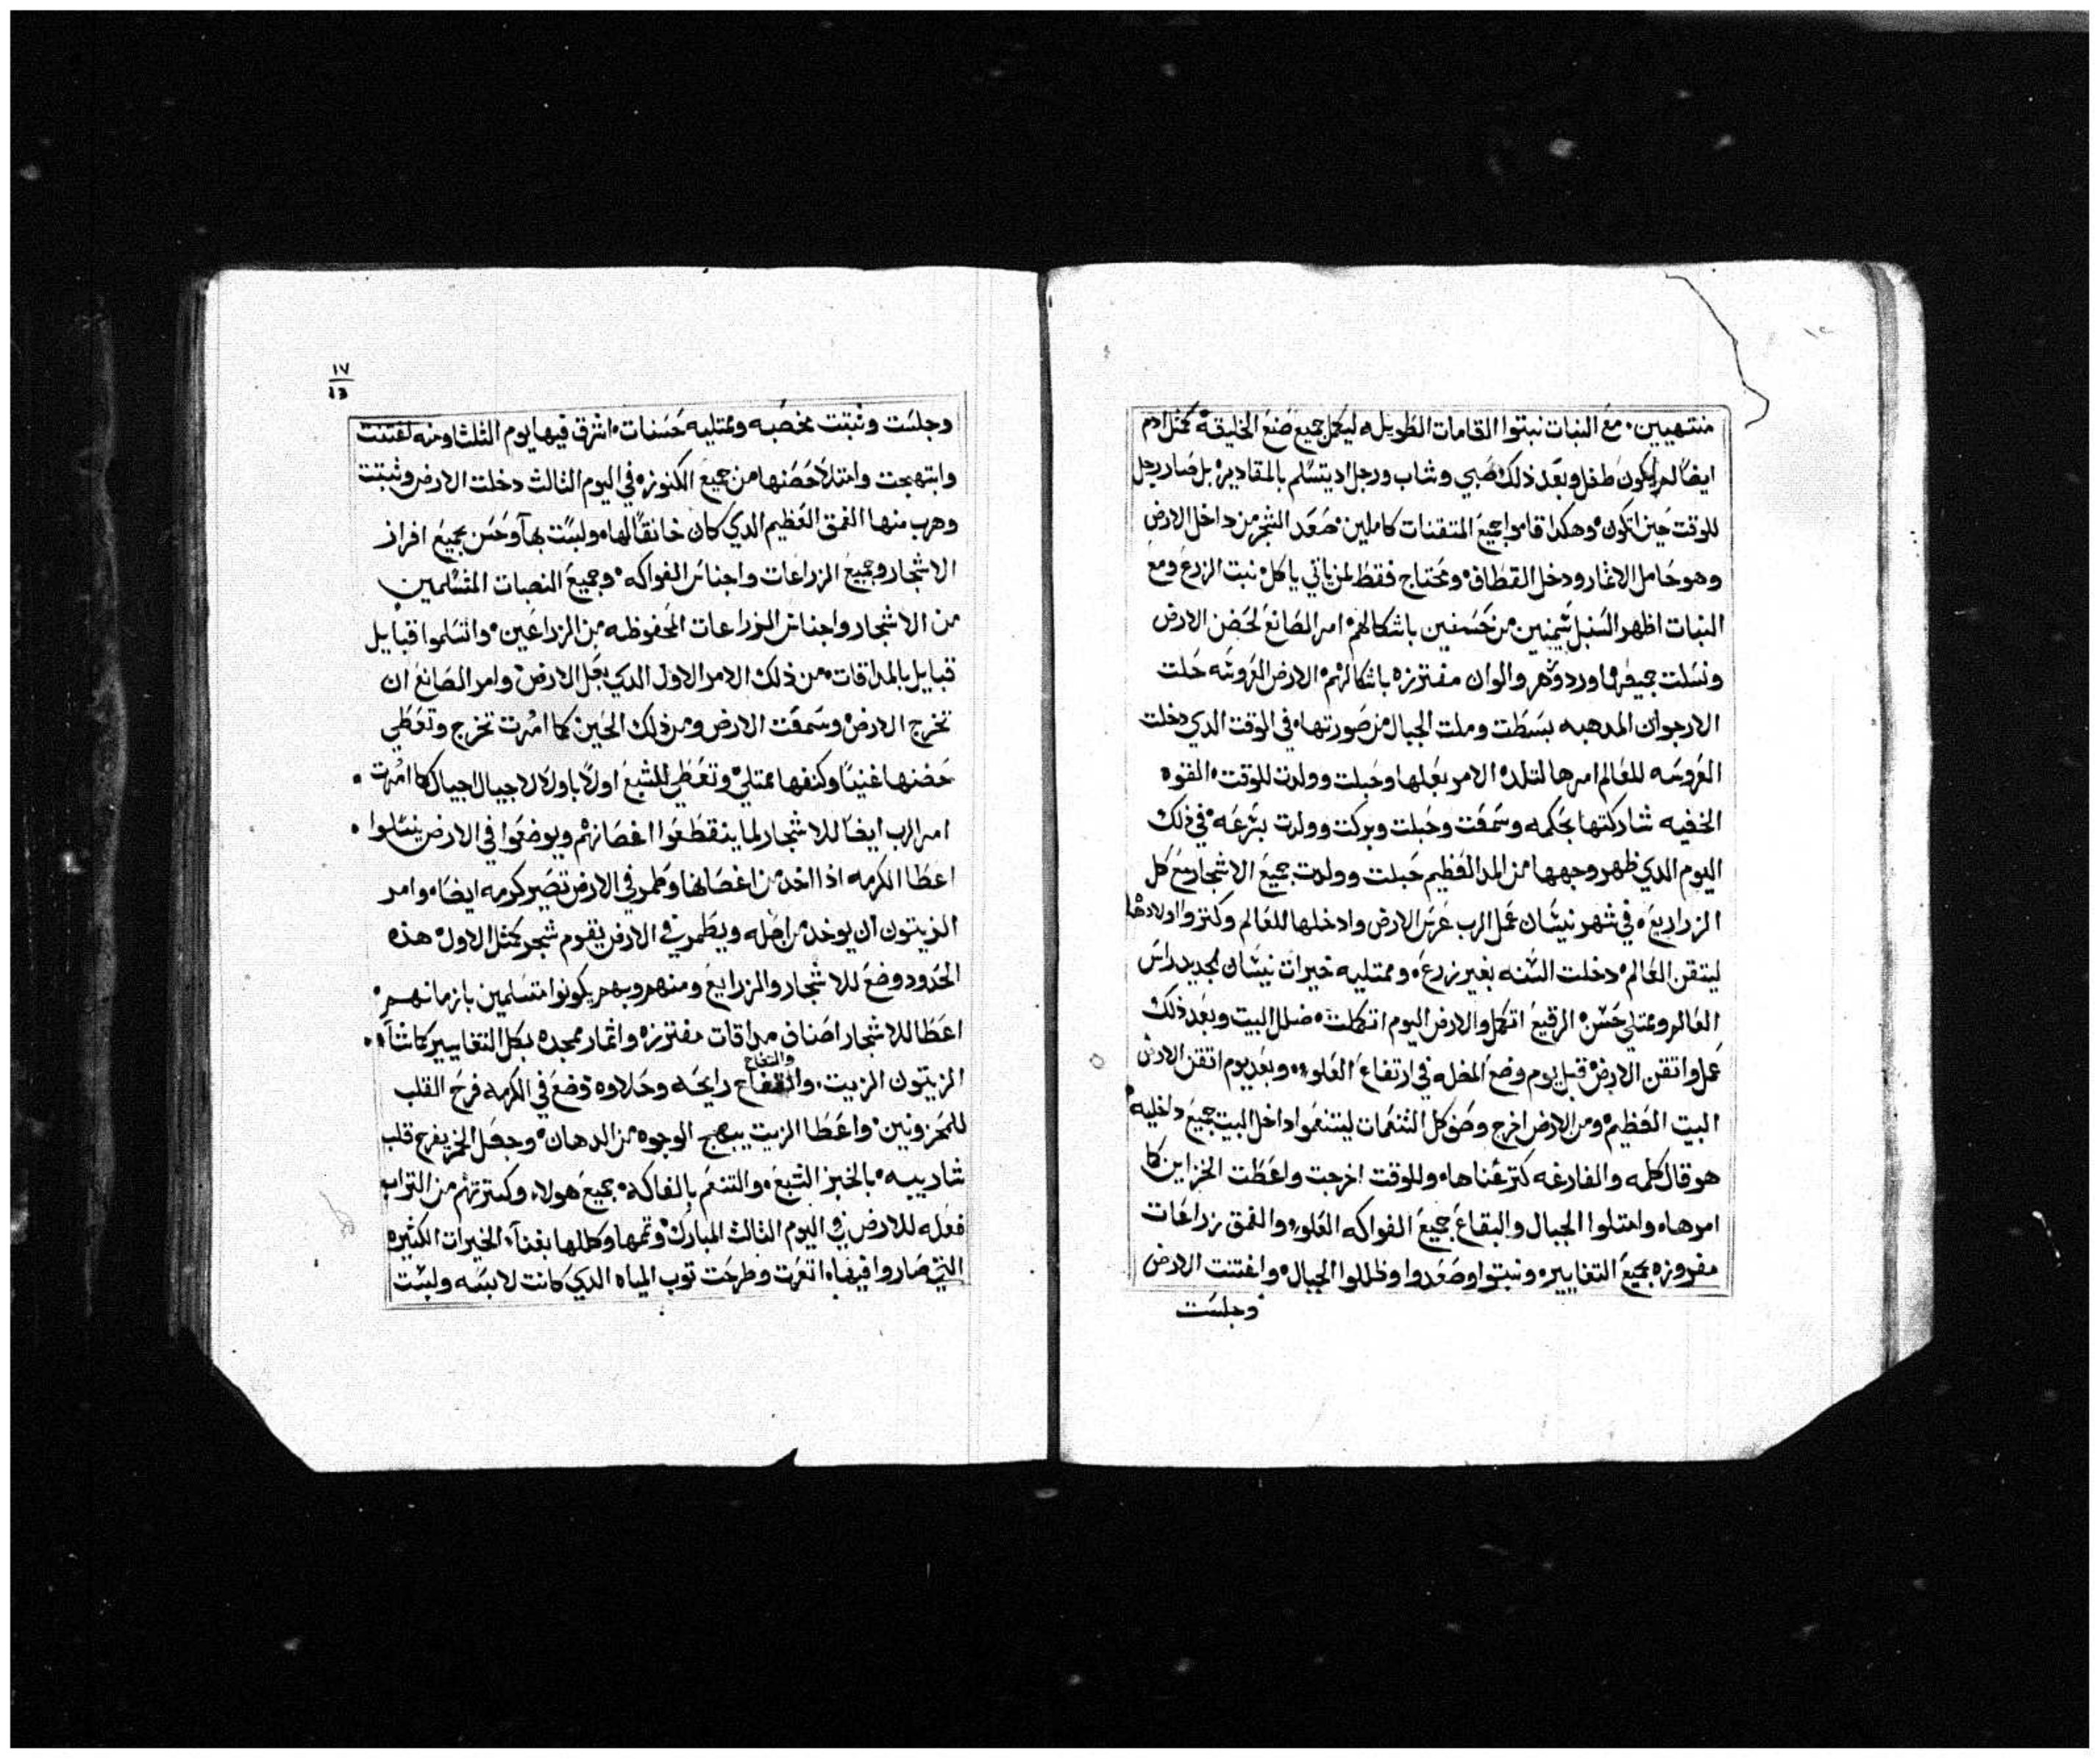 منتهيين. مع النبات نبتوا القامات الطويله ليكمل جميع صنع الخليقة كمثل ادم
ايضاً لم يكون طفل وبعد ذلك صبي وشاب ورجل اد يتسلم بالمقادير بل صار رجل
للوقت حين اتكون وهكدا قاموا جميع المتقنات كاملين صعد الشجر من داخل الارض
وهو حامل الاتمار ودخل القطاف ومحتاج فقط لمن ياتي ياكل نبت الزرع ومع
النبات اظهر السنبل سمينين من حسنين باشكالهم امر الصانع لحضن الارض
ونسلت جميعها ورد وزهر والوان مفترزه باشكالهم الارض العروسه حلت
الارجوان المدهبه بسطت وملت الجبال من صورتها في الوقت الدي دخلت
العروسه للعالم امرها لتلد الامر بعلها وحبلت وولدت للوقت القوه
الخفيه شاركتها بحكمه وسمعت وحبلت وبركت وولدت بسرعه في ذلك
اليوم الدي ظهر وجهها من المد العظيم حبلت وولدت جميع الاشجار مع كل
الزراريع في شهر نيسان عمل الرب عرس الارض وادخلها للعالم وكتروا اولادها
ليتقن العالم دخلت السنه بغير زرع وممتليه خيرات نيسان لجديد راس
العالم وممتلي حسن الرقيع اتكمل والارض اليوم اتكملت ضلل البيت وبعد ذلك
عمل واتقن الارض قبل يوم وضع المضله في ارتفاع العلو وبعد يوم اتقن الارض
البيت العظيم ومن الارض اخرج وصف كل التنعمات ليتنعموا داخل البيت جميع داخليه
هو قال كلمه والفارغه كتر غناها وللوقت اخرجت واعطت الخزاين كما
امرها وامتلوا الجبال والبقاع جميع الفواكه العلو والعمق زراعات
مفروزه بجميع التغايير ونبتوا وصعدوا وظللوا الجبال واغتنت الارض
وجلست
١٧
13
وجلست وثبتت مخصبه وممتليه حسنات اشرق فيها يوم الثلثا ومنه اغتنت
وابتهجت وامتلا حضنها من جميع الكنوزه في اليوم الثالث دخلت الارض وثبتت
وهرب منها العمق العظيم الدي كان خانقاً لها ولبست بهآ وحسن بجميع افراز
الاشجار وجميع الزراعات واجناس الفواكه وجميع النصبات المتسلمين
من الاشجار واجناس الزراعات المحفوظه من الزراعين واتسلموا قبايل
قبايل بالمداقات من ذلك الامر الاول الدي بجبل الارض وامر الصانع ان
تخرج الارض وسمعت الارض ومن ذلك الحين كما امرت تخرج وتعطي
حضنها غنياً وكنفها ممتلي وتعطي للشبع اولاً باولاً لاجيال اجيال كما امرت
امر الرب ايضاً للاشجار لما ينقطعوا اغصانهم ويوضعوا في الارض ينسلوا
اعطا الكرمه اذا اخد من اغصانها وطمر في الارض تصير كرمه ايضاً وامر
الزيتون ان يوخد من اصله ويطمر في الارض يقوم شجر كمثل الاول هذه
الحدود وضع للاشجار والزراريع ومنهم وبهم يكونوا متسلمين بازمانهم
اعطا للاشجار اصناف مداقات مفترزه واتمار ممجده بكل التغايير كما شآء
والتفاح
الزيتون الزيت. والتفاح رايحه وحلاوه وضع في الكرمه فرح القلب
للمحزونين واعطا الزيت يبهج الوجوه من الدهان وجعل الخمر يفرح قلب
شاربيه بالخبز الشبع والتنعم بالفاكه جميع هولاء وكترتهم من التراب
فعله للارض في اليوم الثالث المبارك وتمها وكللها بغناء الخيرات الكثيره
التي صاروا فيها اتعرت وطرحت توب المياه الدي كانت لابسه ولبست